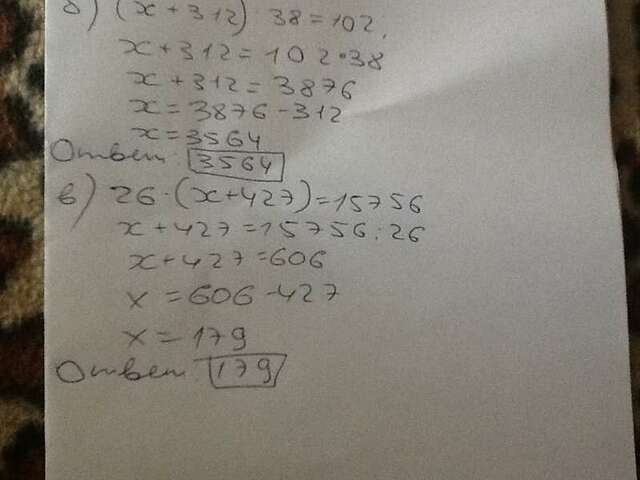 б) (x+312) : 38=102,
x+312=102·38
x+312=3876
x=3876-312
x=3564
Ответ: 3564
в) 26·(x+427)=15756
x+427=15756:26
x+427=606
x=606-427
x=179
Ответ: 179